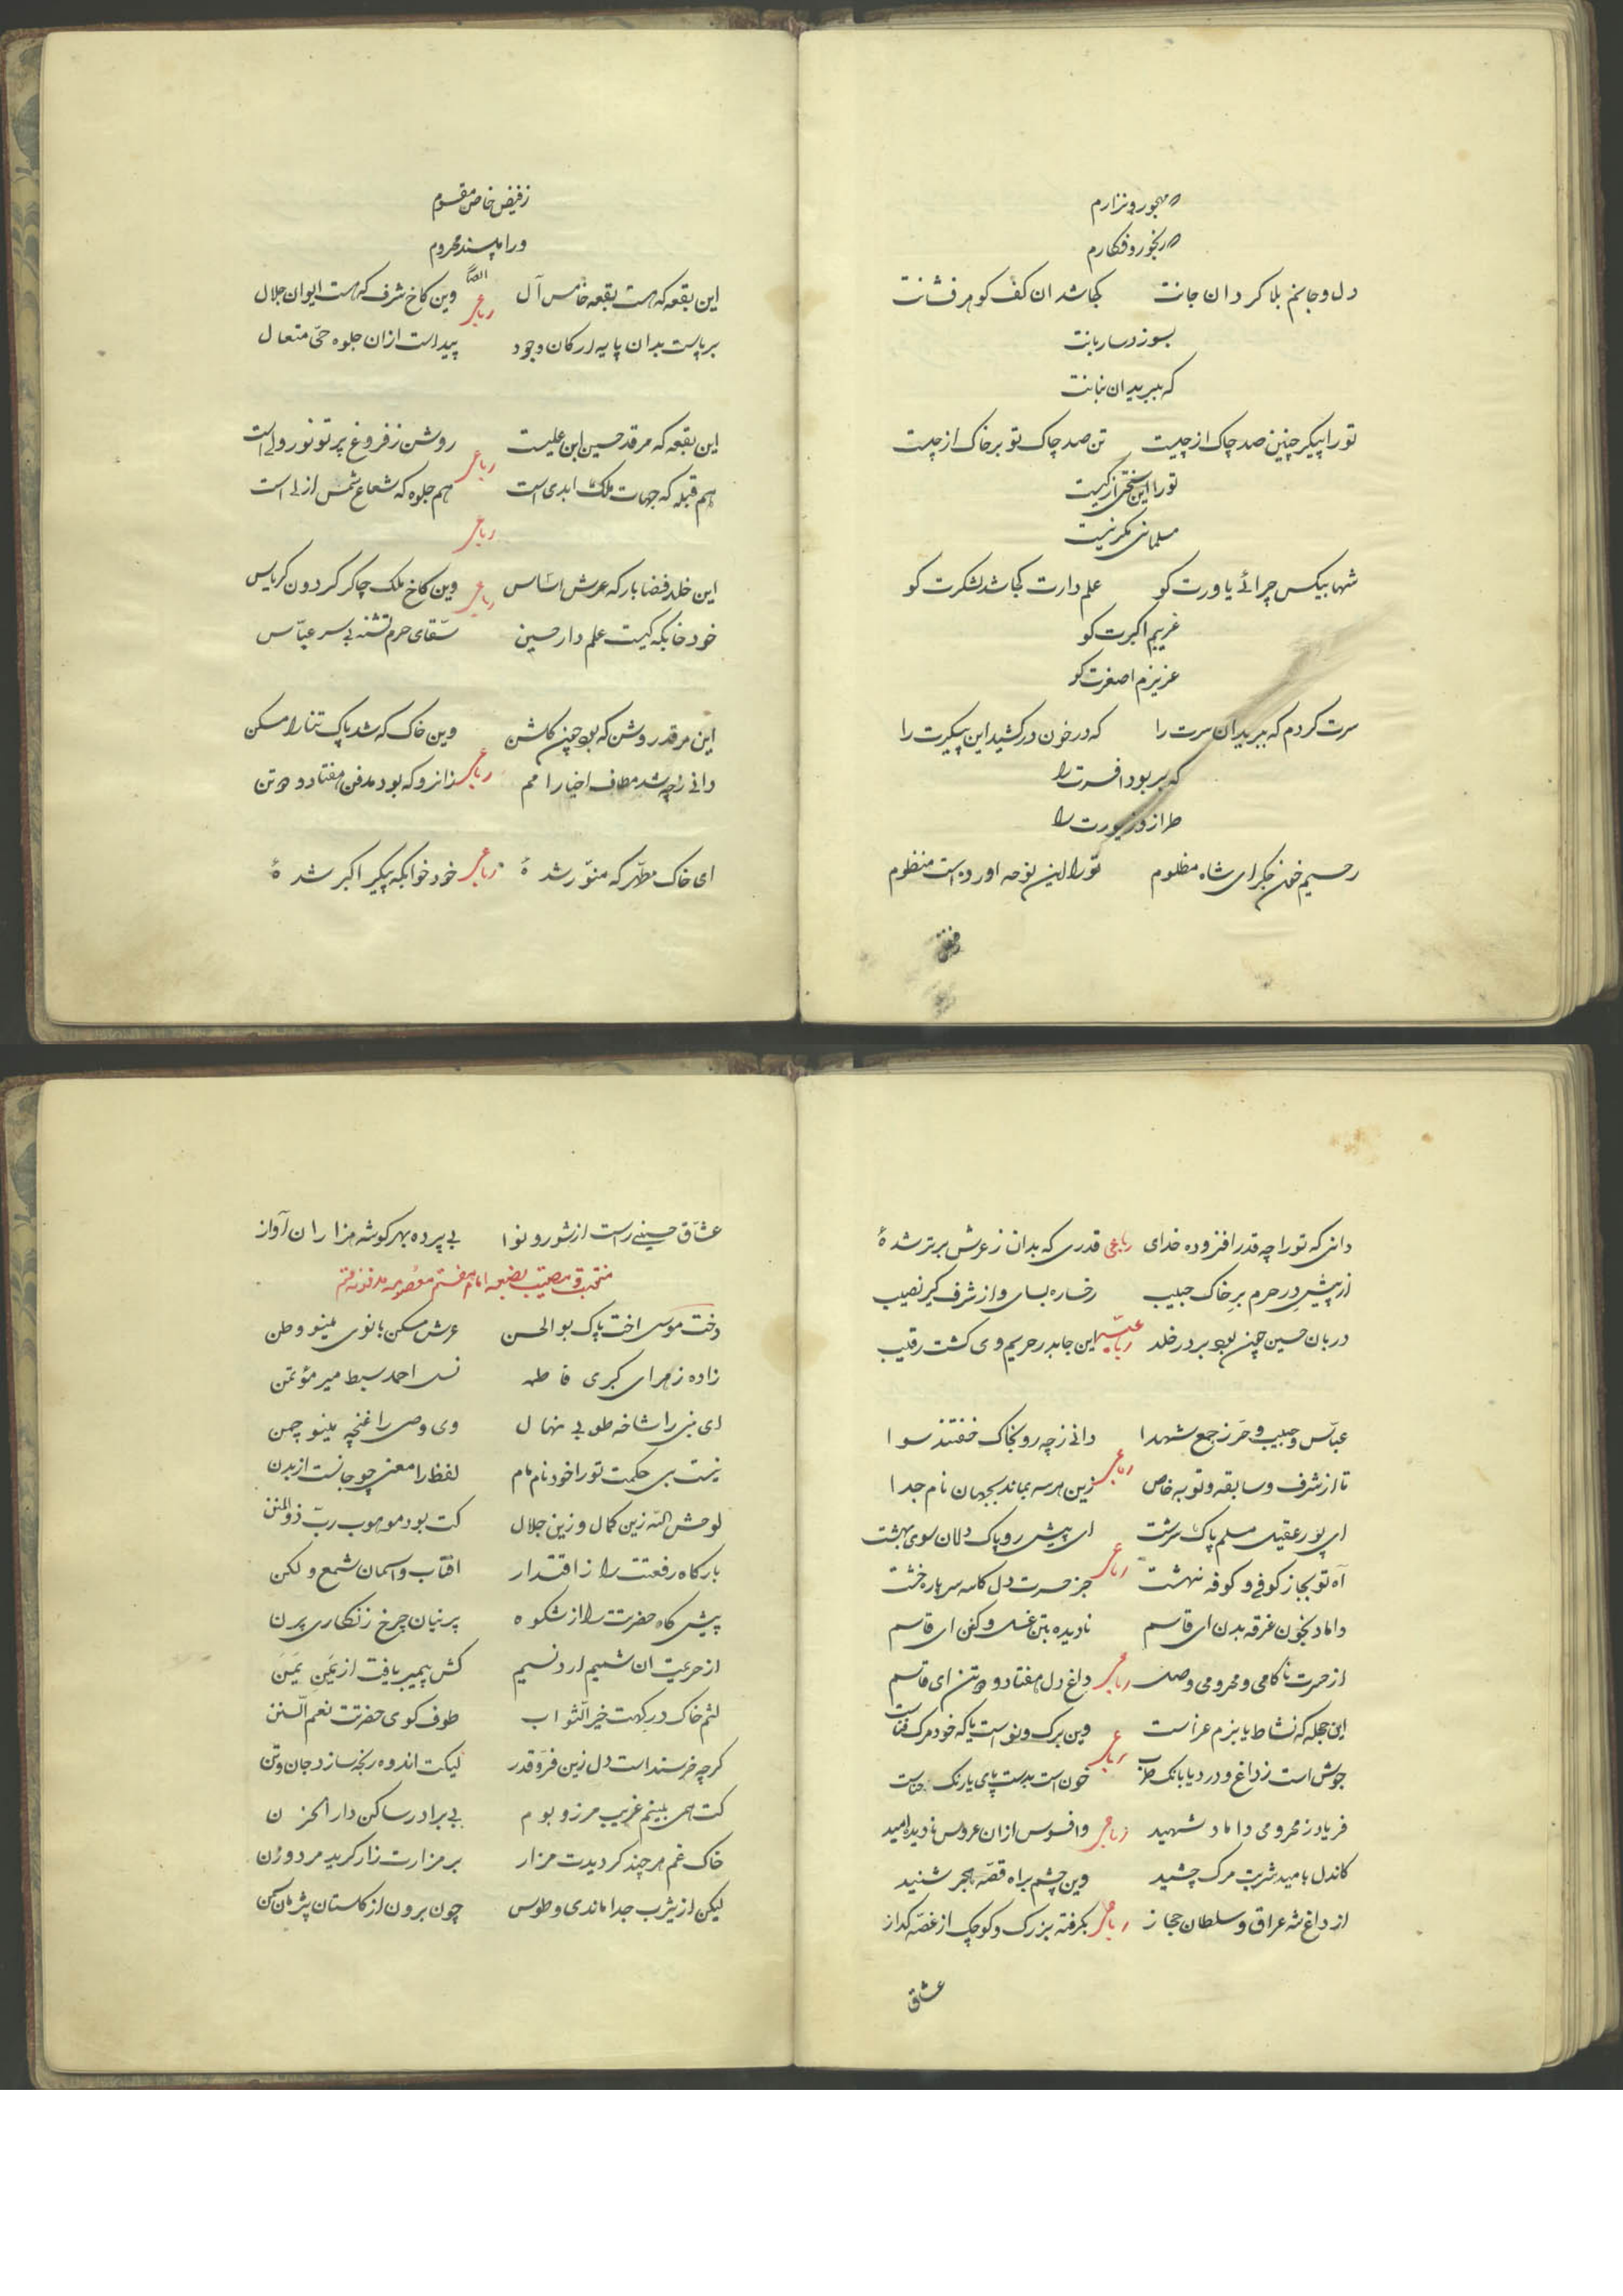 مهجور و نزارم
رنجور و فکارم
دل و جانم بلا کردان جانت کجا شد ان کف کوهر فشانت
بسوزد ساربانت
که ببرید ان بنانت
تو را پیکر چنین صد چاک از چیست تن صد چاک تو بر خاک از چیست
تو را این سختی از کیست
مسلمانی مکر نیست
شها بیکس چرائی یاورت کو علمدارت کجا شد لشکرت کو
غریبم اکبرت کو
عزیزم اصغرت کو
سرت کردم که ببرید ان سرت را که در خون درکشید این پیکرت را
که بربود افسرت را
طراز و زیورت را
رحسیم خون جکر ای شاه مظلوم تو را این نوحه اورده است منظوم
زفیض خاص مقسوم
ورا مپسند محروم
این بقعه که هست بقعه خامس آل رباعی وین کاخ شرف که هست ایوان جلال
برپاست بدان پایه ارکان وجود پیداست ازان جلوه حیّ متعال
این بقعه که مرقد حسین ابن علیست روشن ز فروغ پرتو نور ولی است
رباعی
هم قبله که جهات ملک ابدی است هم جلوه که شعاع شمس ازلی است
رباعی
این خلد فضا بارکه عرش اساس رباعی وین کاخ ملک چاکر کردون کریاس
خود خابکه کیست علمدار حسین سقّای حرم تشنه بی سر عبّاس
این مرقد روشن که بود چین کلشن وین خاک که شد پاک تنا را مسکن
دانی ز چه شد مطاف اخیار امم رباعی زانرو که بود مدفن هفتاد و دو تن
ای خاک مطهّر که منوّر شدهٔ رباعی خود خوابکه پیکر اکبر شدهٔ
دانی که تو را چه قدر افزوده خدای رباعی قدری که بدان ز عرش برتر شدهٔ
از پیش در حرم بر خاک حبیب رخساره بسای و از شرف کیر نصیب
دربان حسین چین بود بر در خلد این جا بدر حریم وی کشت رقیب
عبّاس و حبیب و حرّ ز جمع شهدا دانی ز چه رو بخاک خفتند سوا
رباعی
تا از شرف و سابقه و توبه خاص زین هرسه بماند بجهان نام جدا
ای پور عقیل مسلم پاک سرشت ای پیش رو پاک دلان سوی بهشت
رباعی
آه تو بجا ز کوفی و کوفه نهشت جز حسرت دل کاسه سر پاره خشت
داماد بخون غرقه بدن ای قاسم نادیده بتن غسل و کفن ای قاسم
از حسرت ناکامی و محرومی وصلت رباعی داغ دل هفتاد و دو تن ای قاسم
این حجله که نشاط یا بزم عزاست وین برک و نواست یا که خود مرک فناست
رباعی
جوش است ز داغ و درد یا بانک طرب خون است بدست پای یا رنک حناست
فریاد ز محرومی داماد شهید رباعی وافسوس ازان عروس نادیده امید
کاندل بامید شربت مرک چشید وین چشم براه قصّه هجر شنید
از داغ شه عراق و سلطان حجاز رباعی بکرفته بزرک و کوچک از غصّه کداز
عشّاق
عشّاق حسینی راست از شور و نوا بی پرده بهر کوشه هزاران آواز
دخت موسی اخت پاک بوالحسن عرش مسکن بانوی مینو وطن
زاده زهرای کبری فاطمه نسل احمد سبط میر مؤتمن
ای نبی را شاخه طوبی نهال وی وصی را غنچه مینو چمن
نیست بی حکمت تو را خود نام مام لفظ را معنی چو جانست از بدن
لوحش اللّه زین کمال و زین جلال کت بود موهوب ربّ ذوالمنن
بارکاه رفعتت را ز اقتدار افتاب و اسمان شمع و لکن
پیش کاه حضرتت را از شکوه پرنیان چرخ زنکاری پرن
از حریمت ان شمیم ارد نسیم کش پیمبر یافت از یَمَن یَمَن
لثم خاک درکهت خیر الثواب طوف کوی حضرتت نعم السّنن
کرچه خرسند است دل زین فرّ و قدر لیکت اندوه رنجه سازد جان و تن
کت همی بینم غریب مرز و بوم بی برادر ساکن دار الحزن
خاک غم هر چند کردیدت مزار بر مزارت زار کرید مرد و زن
لیکن از یثرب جدا ماندی و طوس چون برون از کلستان